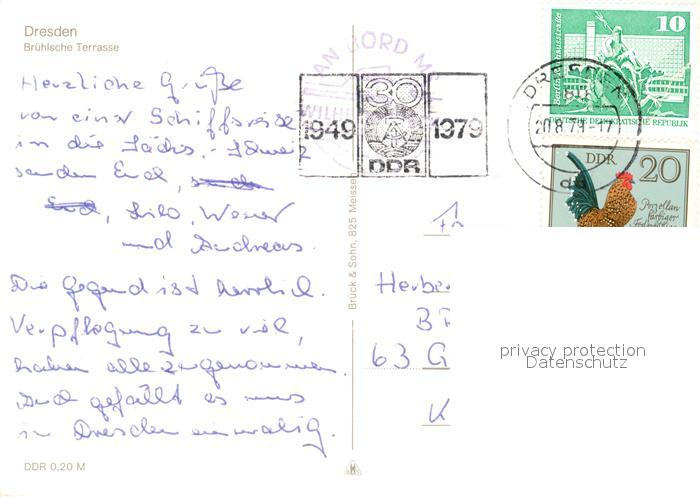 Dresden
Brühlsche Terrasse
Herzliche Grüße
von einer Schiffsreise
in die Sächs.-Schweiz
senden Euch,
Lilo, Werner
und Andreas.
Die Gegend ist herrlich.
Verpflegung zu viel,
haben alle zugenommen.
Und gefällt es uns
in Dresden einmalig.
DDR 0,20 M
Brück & Sohn, 825 Meissen
AN BORD M
WILH
1949
30
DDR
1979
DRESDEN 1
20.8.79-17
10
DEUTSCHE DEMOKRATISCHE REPUBLIK
DDR 20
Porzellan
farbiger
Herbe
63 G
K
privacy protection
Datenschutz